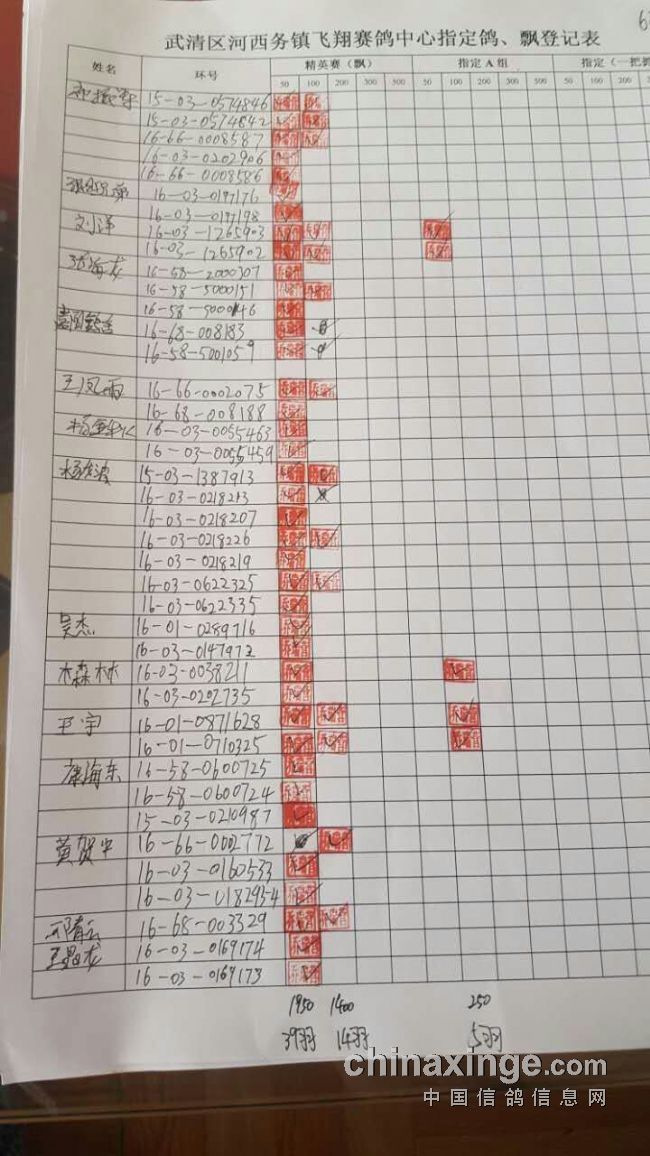 武清区河西务镇飞翔赛鸽中心指定鸽、飘登记表
姓名 环号 精英赛（飘） 指定A组 指定（一把抓
50 100 200 300 500 50 100 200 300 500 50 100 200
15-03-0574846
15-03-0574842
16-66-0008587
16-03-0202906
16-66-0008586
16-03-0197176
16-03-0197198
刘洋 16-03-1265903
16-03-1265902
张海龙 16-58-2000307
16-58-5000151
16-58-5000146
16-68-008183
16-58-5001059
王凤雨 16-66-0002075
16-68-008188
16-03-0055463
16-03-0055459
15-03-1387913
16-03-0218213
16-03-0218207
16-03-0218226
16-03-0218219
16-03-0622325
16-03-0622335
吴杰 16-01-0289716
16-03-0147972
木森林 16-03-0038211
16-03-0202735
王宇 16-01-0871628
16-01-0710325
康海东 16-58-0600725
16-58-0600724
15-03-0210987
黄贺中 16-66-0002772
16-03-0160533
16-03-0182954
16-68-003329
16-03-0169174
16-03-0169173
1950 1400 250
39羽 14羽 5羽
chinaxinge.com
中国信鸽信息网